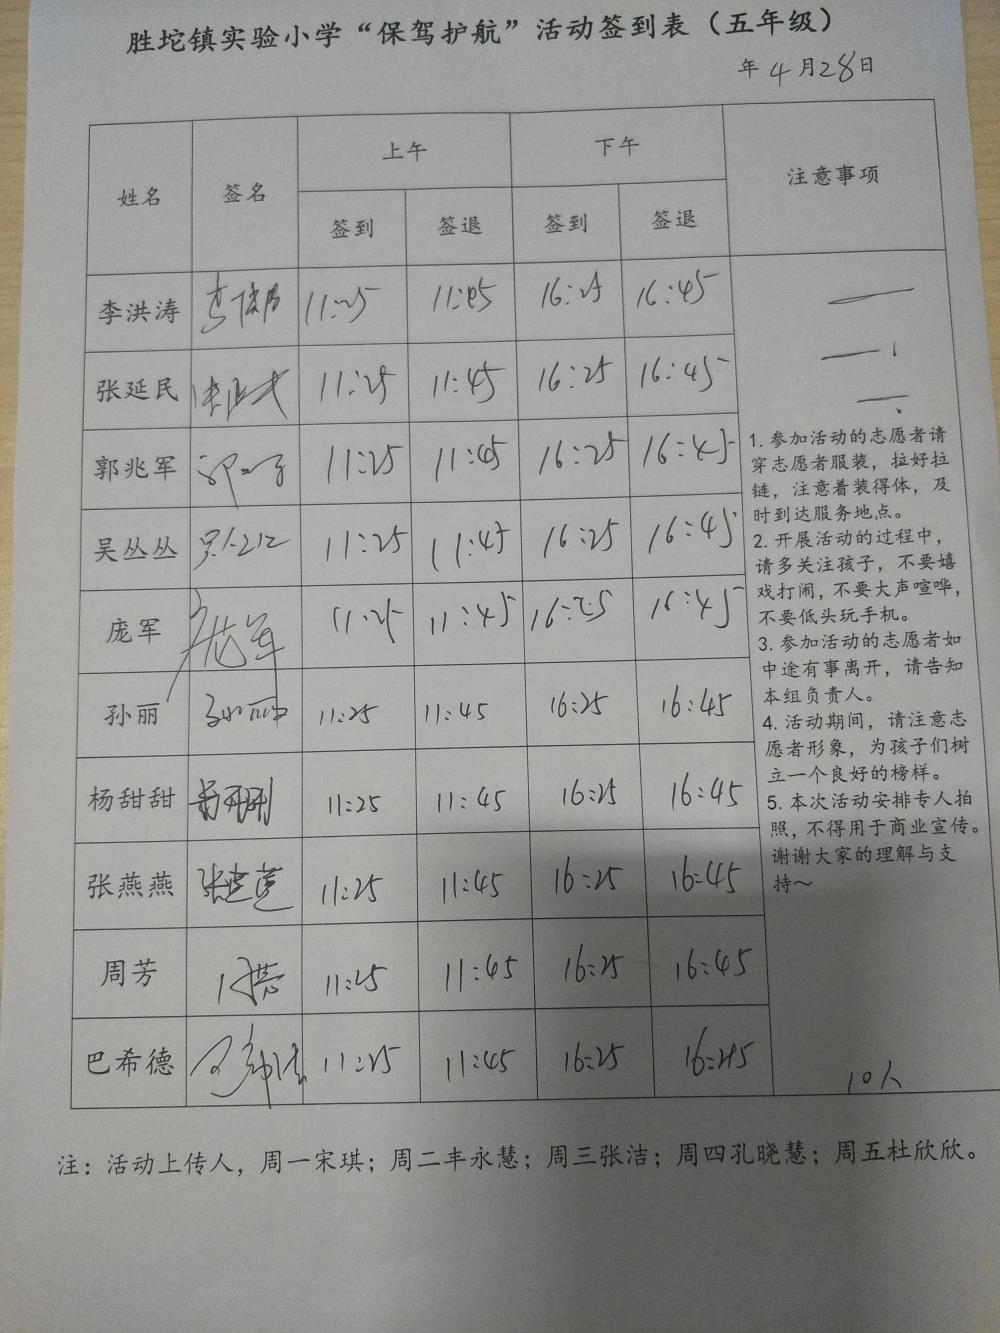 胜坨镇实验小学“保驾护航”活动签到表（五年级）
年4月28日
姓名 签名 上午 下午 注意事项
签到 签退 签到 签退
李洪涛 11:25 11:45 16:25 16:45
张延民 11:25 11:45 16:25 16:45
郭兆军 11:25 11:45 16:25 16:45
吴丛丛 11:25 11:45 16:25 16:45
庞军 庞军 11:25 11:45 16:25 16:45
孙丽 孙丽 11:25 11:45 16:25 16:45
杨甜甜 11:25 11:45 16:25 16:45
张燕燕 11:25 11:45 16:25 16:45
周芳 11:25 11:45 16:25 16:45
巴希德 11:25 11:45 16:25 16:45
1. 参加活动的志愿者请
穿志愿者服装，拉好拉
链，注意着装得体，及
时到达服务地点。
2. 开展活动的过程中，
请多关注孩子，不要嬉
戏打闹，不要大声喧哗，
不要低头玩手机。
3. 参加活动的志愿者如
中途有事离开，请告知
本组负责人。
4. 活动期间，请注意志
愿者形象，为孩子们树
立一个良好的榜样。
5. 本次活动安排专人拍
照，不得用于商业宣传。
谢谢大家的理解与支
持～
10人
注：活动上传人，周一宋琪；周二丰永慧；周三张洁；周四孔晓慧；周五杜欣欣。